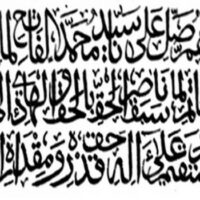 صل على سيدنا محمد الفاتح لما
لما سبق ناصر الحق بالحق والهادي
وعلى اله حق قدره ومقداره